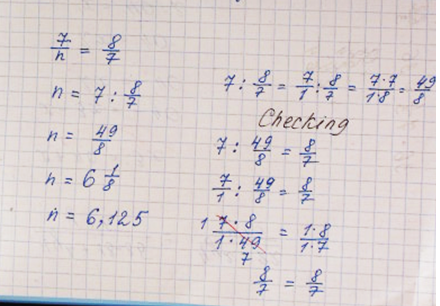 7/n = 8/7
n = 7 : 8/7
n = 49/8
n = 6 1/8
n = 6,125
7 : 8/7 = 7/1 : 8/7 = 7·7/1·8 = 49/8
Checking
7 : 49/8 = 8/7
7/1 : 49/8 = 8/7
1 7·8/1·49 7 = 1·8/1·7
8/7 = 8/7